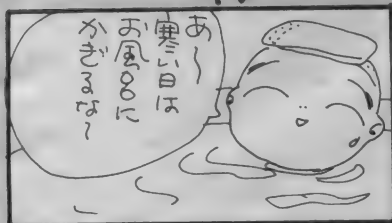 あ〜
寒い日は
お風呂に
かぎるな〜